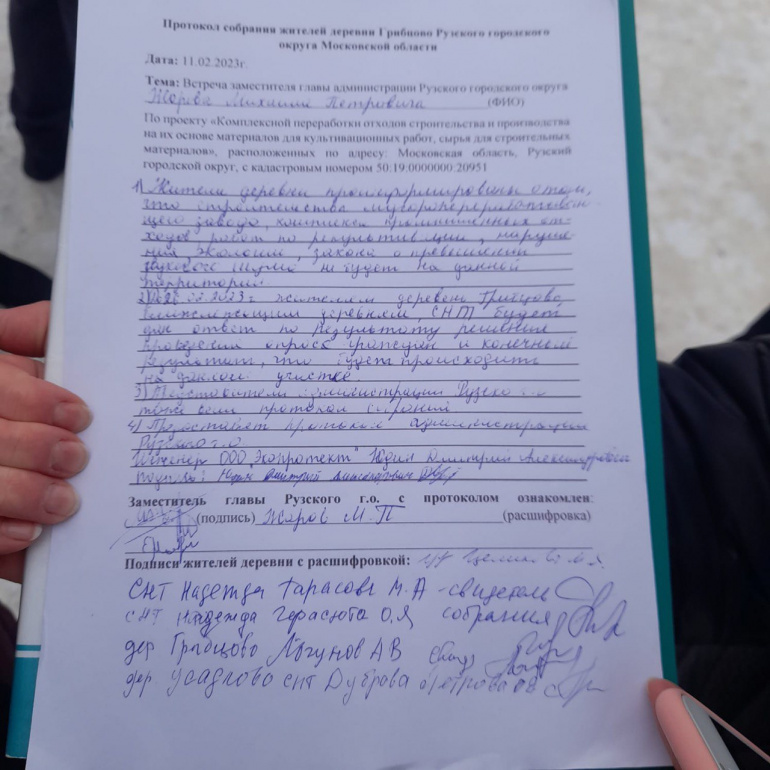 Протокол собрания жителей деревни Грибцово Рузского городского
округа Московской области
Дата: 11.02.2023г.
Тема: Встреча заместителя главы администрации Рузского городского округа
Жарова Михаила Петровича (ФИО)
По проекту «Комплексной переработки отходов строительства и производства
на их основе материалов для культивационных работ, сырья для строительных
материалов», расположенных по адресу: Московская область, Рузский
городской округ, с кадастровым номером 50:19:0000000:20951
1) Жители деревни проинформированы о том,
что строительства мусороперерабатываю-
щего завода, комплекса промышленных от-
ходов, работ по рекультивации, наруше-
ния экологии, закона о превышении
звукового шума не будет на данной
территории.
02.2023 г жителям деревень Грибцово,
близлежащим деревням, СНТ будет
дан ответ по результату решения
проведения опроса граждан и конечном
результате, что будет происходить
на данном участке.
3) Представители администрации Рузско г.о
протокол собрания
4) Предоставят протокол администрации
Рузского г.о
Инженер ООО "Экопротект" Юдин Дмитрий Александрович
Юдин Дмитрий Александрович
Заместитель главы Рузского г.о. с протоколом ознакомлен:
(подпись) Жаров М.П (расшифровка)
Подписи жителей деревни с расшифровкой:
СНТ Надежда Тарасова М.А - свидетели
СНТ Надежда Герасюта О.Я собрания
дер Грибцово Лыгунов АВ
дер. СНТ Дуброва Петрова ОВ